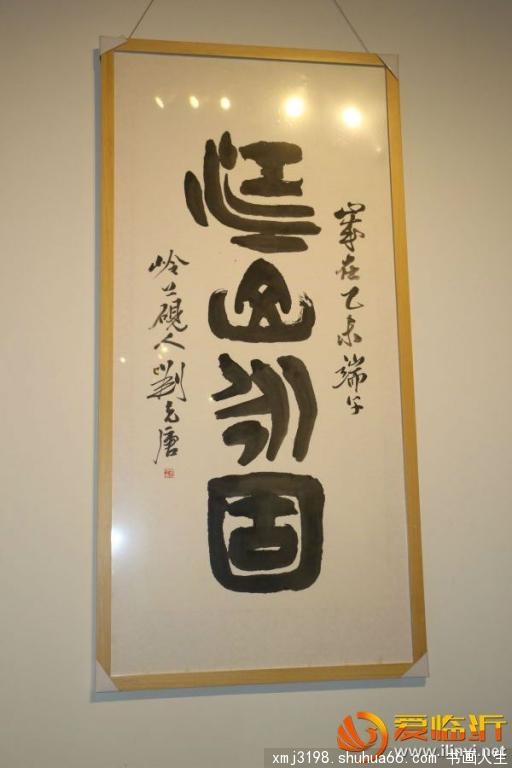 岁在乙未端午
江山永固
岭上砚人刘元唐
爱临沂
www.ilinyi.net
xmj3198.shuhua66.com 书画人生